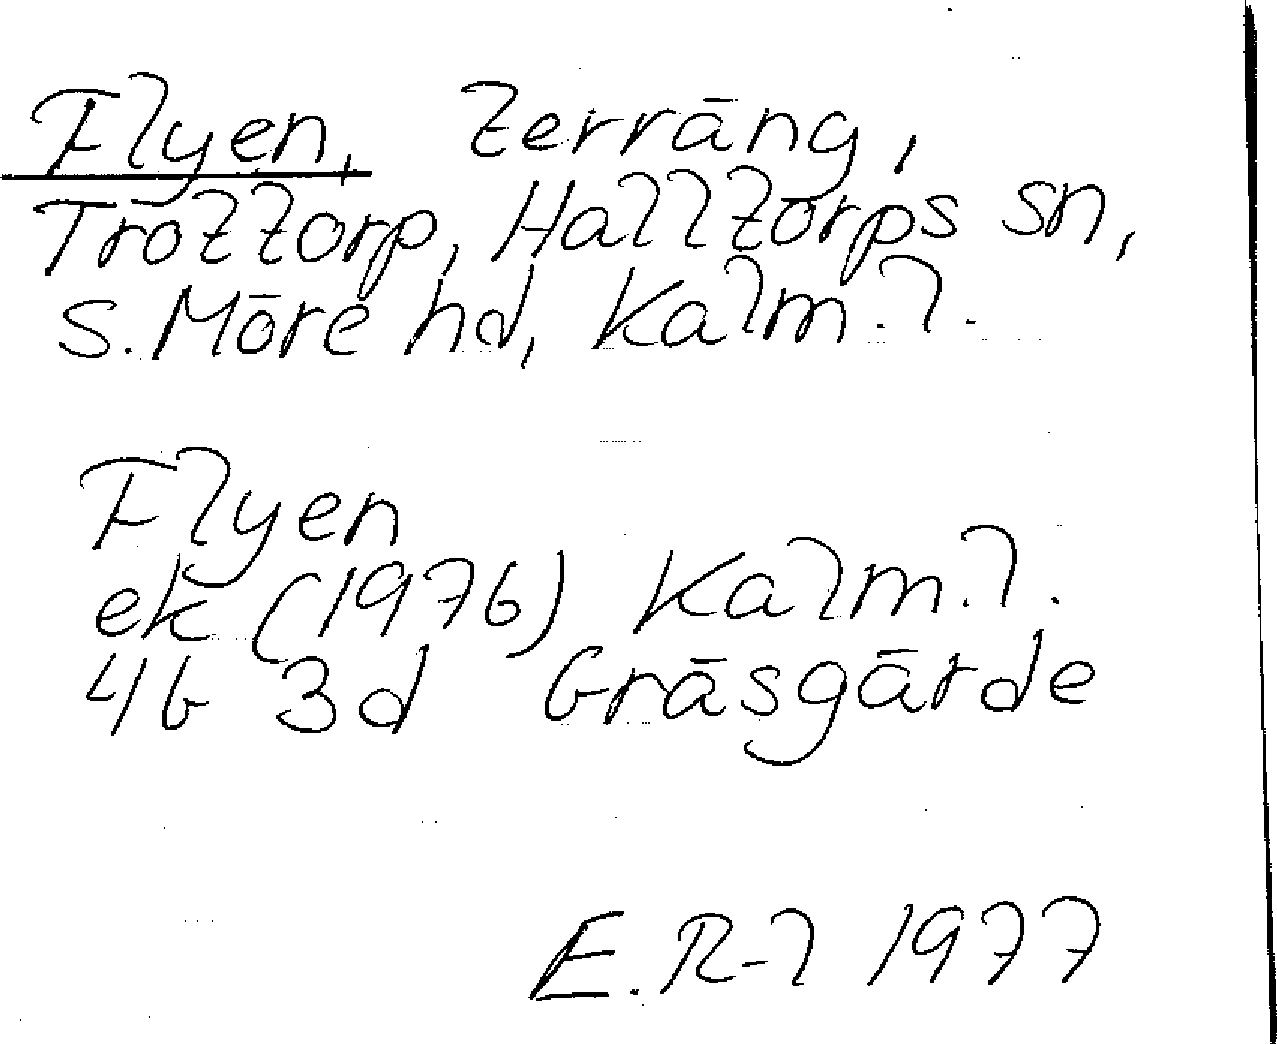 Flyen, terräng,
Tröttorp, Halltorps sn,
S. Möre hd, Kalm. l.
Flyen
ek (1976) Kalm. l.
4G 3d Gräsgärde
E. R-l 1977